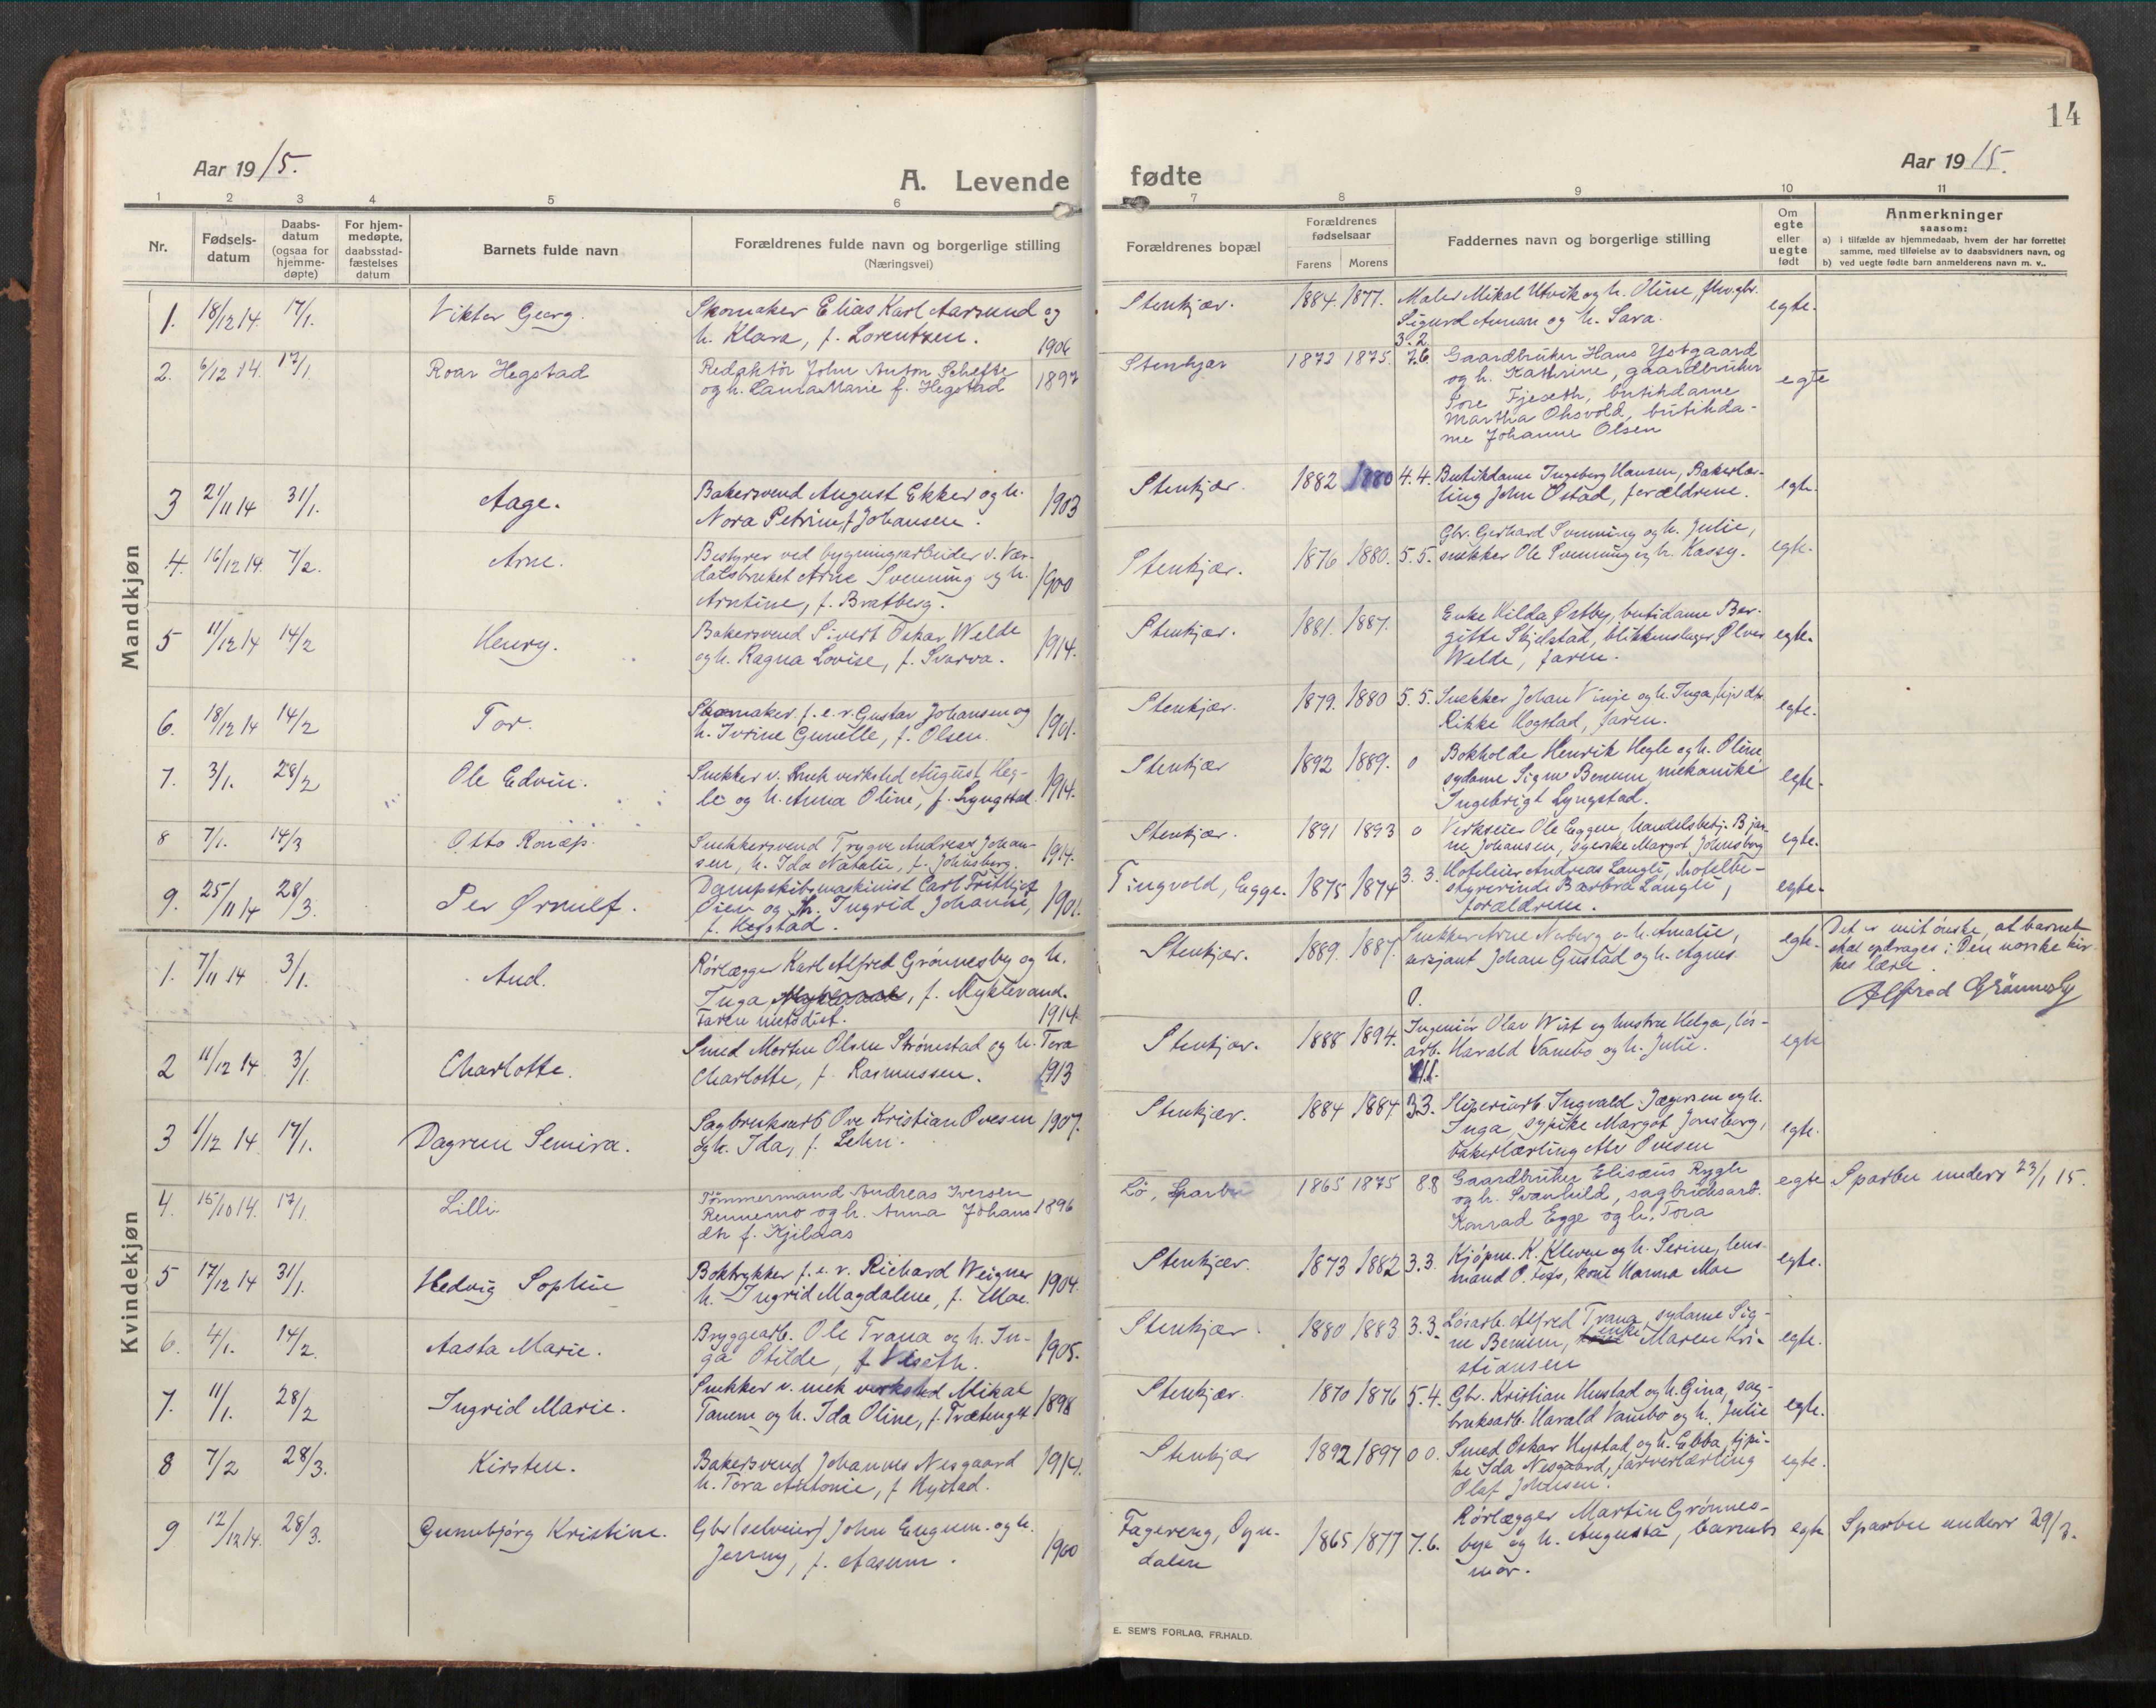 14
Aar 1915.
A. Levende fødte
Aar 1915.
1 2 3 4 5 6 7 8 9 10 11
Nr.
Fødsels-
datum
Daabs-
datum
(ogsaa for
hjemme-
døpte)
For hjem-
medøpte,
daabsstad-
fæstelses
datum
Barnets fulde navn
Forældrenes fulde navn og borgerlige stilling
(Næringsvei)
Forældrenes bopæl
Forældrenes
fødselsaar
Farens Morens
Faddernes navn og borgerlige stilling
Om
egte
eller
uegte
født
Anmerkninger
saasom:
a) i tilfælde av hjemmedaab, hvem der har forrettet
samme, med tilføielse av to daabsvidners navn, og
b) ved uegte fødte barn anmelderens navn m. v..
Mandkjøn
1. 18/12 14. 17/1. Viktor Georg. Skomaker Elias Karl Aarsund og
h. Klara, f. Lorentzen. 1906
Stenkjær. 1884. 1877. 3.2 Maler Mikal Utvik og h. Oline,
Sigurd Aunan og h. Sara. egte.
2. 6/12 14. 17/1. Roar Hegstad Redaktör John Anton Schefte
og h. Laura Marie f. Hegstad 1897
Stenkjær 1872 1875. 7.6. Gaardbruker Hans Ystgaard
og h. Kathrine, gaardbruker
Tore Fjeseth, butikdame
Martha Ohsvold, butikda-
me Johanne Olsen egte
3 21/11 14 31/1. Aage. Bakersvend August Ekker og h.
Nora Petrine f. Johansen. 1903
Stenkjær. 1882 1880 4.4. Butikdame Ingeborg Hansen, Bakerlær-
ling John Østad, forældrene. egte.
4. 16/12 14. 7/2. Arne. Bestyrer ved bygningsarbeider v. Vær-
dalsbruket Arne Svenning og h.
Arntine, f. Bratberg. 1900
Stenkjær. 1876 1880. 5.5. Gbr. Gerhard Svenning og h. Julie,
snekker Ole Svenning og h. Kassy. egte.
5 11/12 14 14/2 Henry. Bakersvend Sivert Oskar Welde
og h. Ragna Lovise, f. Svarva. 1914.
Stenkjær. 1881. 1887. Enke Hilda Østby, butidame Ber-
gitte Skjelstad, blikkenslager Ølver
Welde, faren. egte.
6. 18/12 14 14/2 Tor. Skomaker f. e. r. Gustav Johansen og
h. Ivrine Gunelle, f. Olsen. 1901.
Stenkjær. 1879. 1880 5.5. Snekker Johan Vinje og h. Inga,
Rikke Hogstad, faren. egte.
7. 3/1. 28/2 Ole Edvin. Snekker v. mek verksted August Heg-
le og h. Anna Oline, f. Lyngstad. 1914.
Stenkjær 1892 1889. 0 Bokholde Henrik Hegle og h. Oline
sydame Signe Bonum, mekanike
Ingebrigt Lyngstad. egte.
8 7/1. 14/3 Otto Snekkersvend Trygve Andreas Johan-
sen, h. Ida Natalie, f. Johnsberg. 1914.
Stenkjær. 1891 1893 0 Verkseier Ole Eggen, Handelsbetj. Bjar-
ne Johansen, syerske Margot Johnsborg egte.
9. 25/11 14 28/3. Per Ørnulf. Dampskibsmaskinist Carl Frithjof
Øien og h. Ingrid Johanne,
f. Hegstad. 1901.
Tingvold, Egge. 1875 1874 3.3. Hoteleier Andreas Langli, hotelbe-
styrerinde Barbra Langli,
forældrene. egte.
Kvindekjøn
1. 7/11 14 3/1. Aud. Rørlægger Karl Alfred Grönnesby og h.
Inga , f. Myklevand.
Faren metodist. 1914
Stenkjær. 1889. 1887. 0. Snekker Arne Naberg o h. Amalie,
Johan Gustad og h. Agnes. egte.
Det er mit ønske, at barnet
skal opdrages i Den norske kir-
kes lære.
Alfred Grönnesby
2 11/12 14 3/1. Charlotte. Smed Morten Olsen Strömstad og h. Tora
Charlotte, f. Rasmussen. 1913
Stenkjær. 1888 1894. Ingeniør Olav Wist og hustru Helga, løs-
arb. Harald Vambo og h. Julie. egte
3 1/12 14 17/1. Dagrun Semira. Sagbruksarb Ove Kristian Ovesen
og h. Ida, f. Lehn. 1907.
Stenkjær. 1884 1884 3.3. Sliperiarb Ingvald Jægersen og h.
Inga, sypike Margot Jonsborg,
bakerlærling Alv Ovesen egte.
4. 15/10 14. 17/1. Lilli. Tömmermand Andreas Iversen
Rennemo og h. Anna Johans
dtr f. Kjilaas 1896
Lö, Sparbu 1865 1875 8.8 Gaardbruker Elisæus Rygh
og h. Svanhild, sagbruksarb.
Konrad Egge og h. Tora egte Sparbu underr 23/1 15.
5 17/12 14 31/1. Hedvig Sophie Boktrykker f. e. r. Richard Weigner
h. Ingrid Magdalene, f. Moe. 1904.
Stenkjær. 1873 1882 3.3. Kjöpm. K. Kleven og h. Serine, lens-
mand O. Five, kone Hanna Moe egte.
6. 4/1. 14/2. Aasta Marie. Bryggearb. Ole Trana og h. In-
ga Otilde, f. Viseth. 1905.
Stenkjær. 1880 1883 3.3. Lösarb. Alfred Trana, sydame Sig-
ne Benum, enke Maren Kri-
stiansen egte.
7. 11/1. 28/2 Ingrid Marie. Snekker v. mek verksted Mikal
Tanem og h. Ida Oline, f. 1898
Stenkjær. 1870 1876 5.4. Gbr. Kristian Hustad og h. Gina, sag-
bruksarb. Harald Vambo og h. Julie egte.
8 7/2 28/3. Kirsten. Bakersvend Johannes Nesgaard
h. Tora Antonie, f. Hystad. 1914.
Stenkjær 1892 1897 0 0. Smed Oskar Hystad og h. Ebba, tjpi-
ke Ida Nesgaard, farverlærling
Olaf Johnsen. egte.
9 12/12 14. 28/3. Gunnbjörg Kristine. Gbr (selveier) John Eugum. og h.
Jenny, f. Aasum. 1900
Fagereng, Ogn-
dalen 1865 1877 7.6. Rørlægger Martin Grönnes-
bye og h. Augusta, barnets
mor. egte Sparbu underr 29/3.
E. SEM'S FORLAG, FR.HALD.